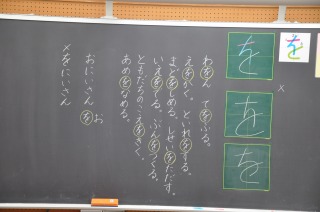 を
を
を
を
×
わをん てをふる。
えをかく。といれをする。
まどをしめる。しせいをただす。
いえをでる。ぶんをつくる。
ともだちのこえをきく。
あめをなめる。
おにいさん を お
×をにいさん